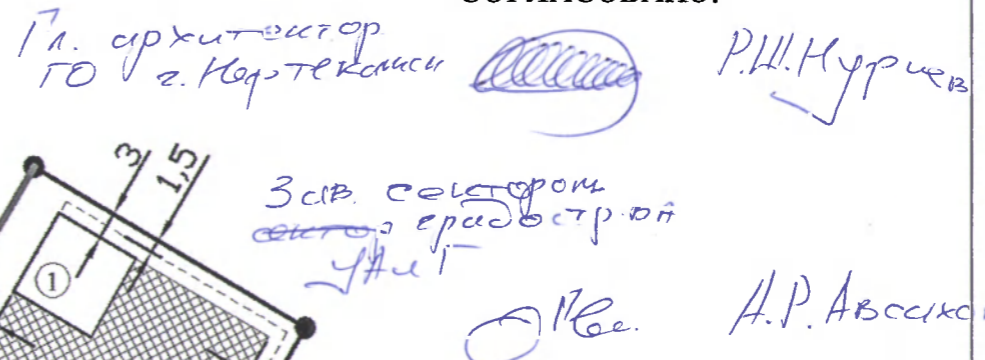 СОГЛАСОВАНО:
Гл. архитектор
ГО г. Нефтекамск Р.Ш.Нуриев
3
1,5
Зав. сектором
градостр
УАиГ
1
А.Р. Авсахо